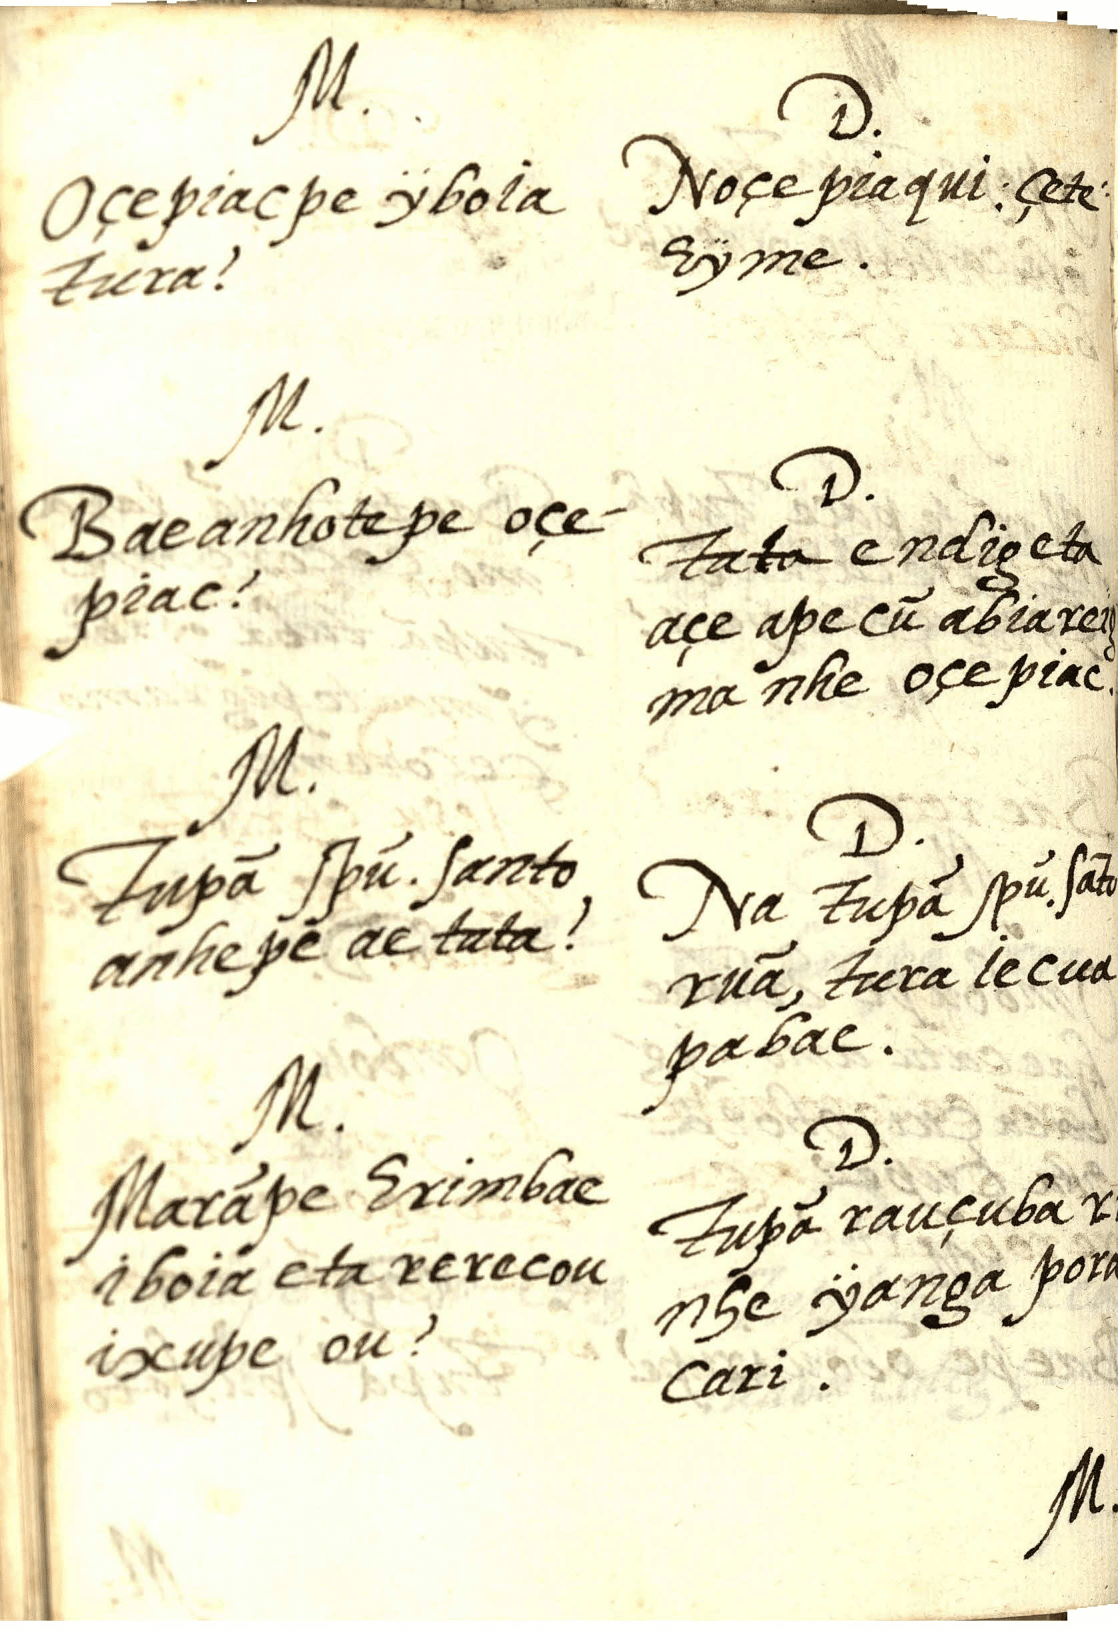 M.
Oçepiacpe ÿboia
tura?
D.
Noçepiaqui: çete
Eÿme.
M.
Baeanhotepe oçe-
piac?
D.
tata endigeta
açe apecũ abiareig
ma nhe oçepiac.
M.
Tupã spũ. santo
anhepe ae tata?
D.
Na tupã spũ. sãto
ruã, tura iecua
pabae.
M.
Marãpe Erimbae
iboia eta rerecou
ixupe ou?
D.
tupã rauçuba
nhe ÿanga
cari.
M.